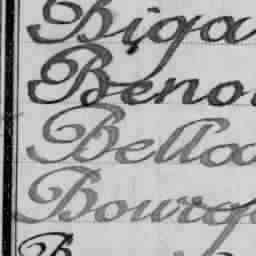 Biga
Beno
Bello
Bourg
B